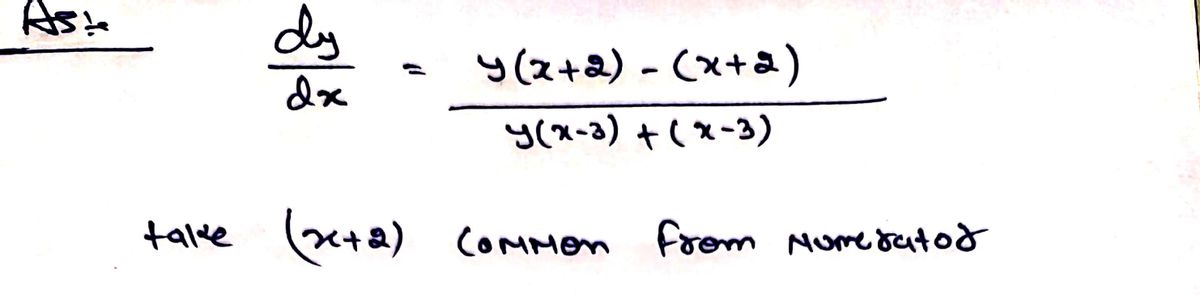 As:-
dy/dx = y(x+2) - (x+2) / y(x-3) + (x-3)
take (x+2) common from Numerator